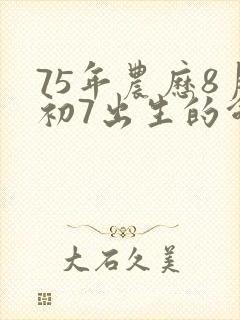 75年農歷8月
初7出生的命
大石久美